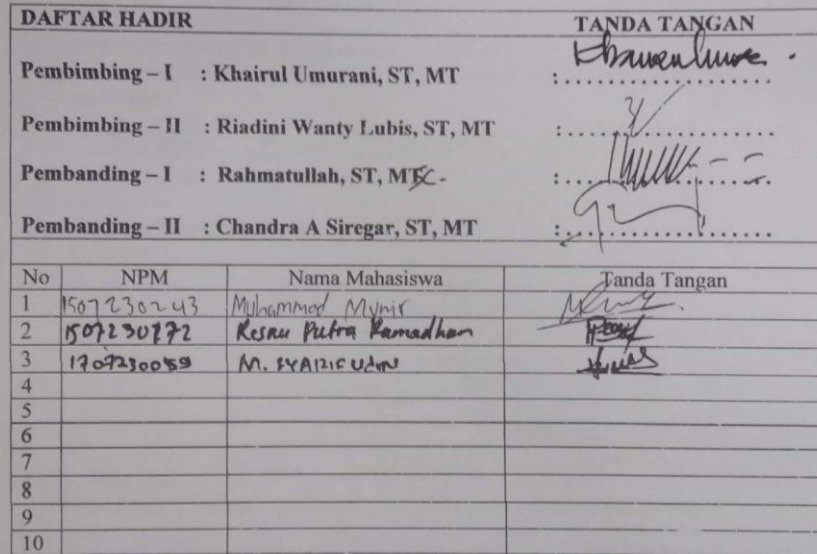 DAFTAR HADIR TANDA TANGAN
Pembimbing – I : Khairul Umurani, ST, MT :....................
Pembimbing – II : Riadini Wanty Lubis, ST, MT :....................
Pembanding – I : Rahmatullah, ST, MT :....................
Pembanding – II : Chandra A Siregar, ST, MT :....................
No NPM Nama Mahasiswa Tanda Tangan
1 1507230243 Muhammad Munir
2 Resnu Putra Ramadhan
3 M. SYARIFUdIN
4
5
6
7
8
9
10